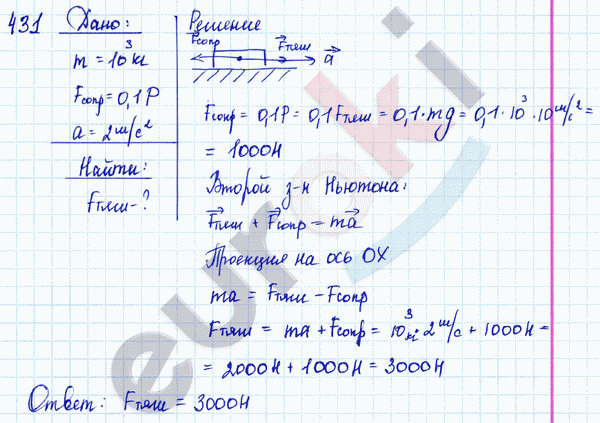 431 Дано:
m = 10³ кг
Fсопр = 0,1P
a = 2 м/с²
Найти:
Fтяги - ?
Решение
Fсопр Fтяги a
Fсопр = 0,1P = 0,1 Fтяж = 0,1 · mg = 0,1 · 10³ · 10 м/с² =
= 1000Н
Второй з-н Ньютона:
Fтяги + Fсопр = ma
Проекция на ось OX
ma = Fтяги - Fсопр
Fтяги = ma + Fсопр = 10³ кг · 2 м/с + 1000Н =
= 2000Н + 1000Н = 3000Н
Ответ: Fтяги = 3000Н
euroki